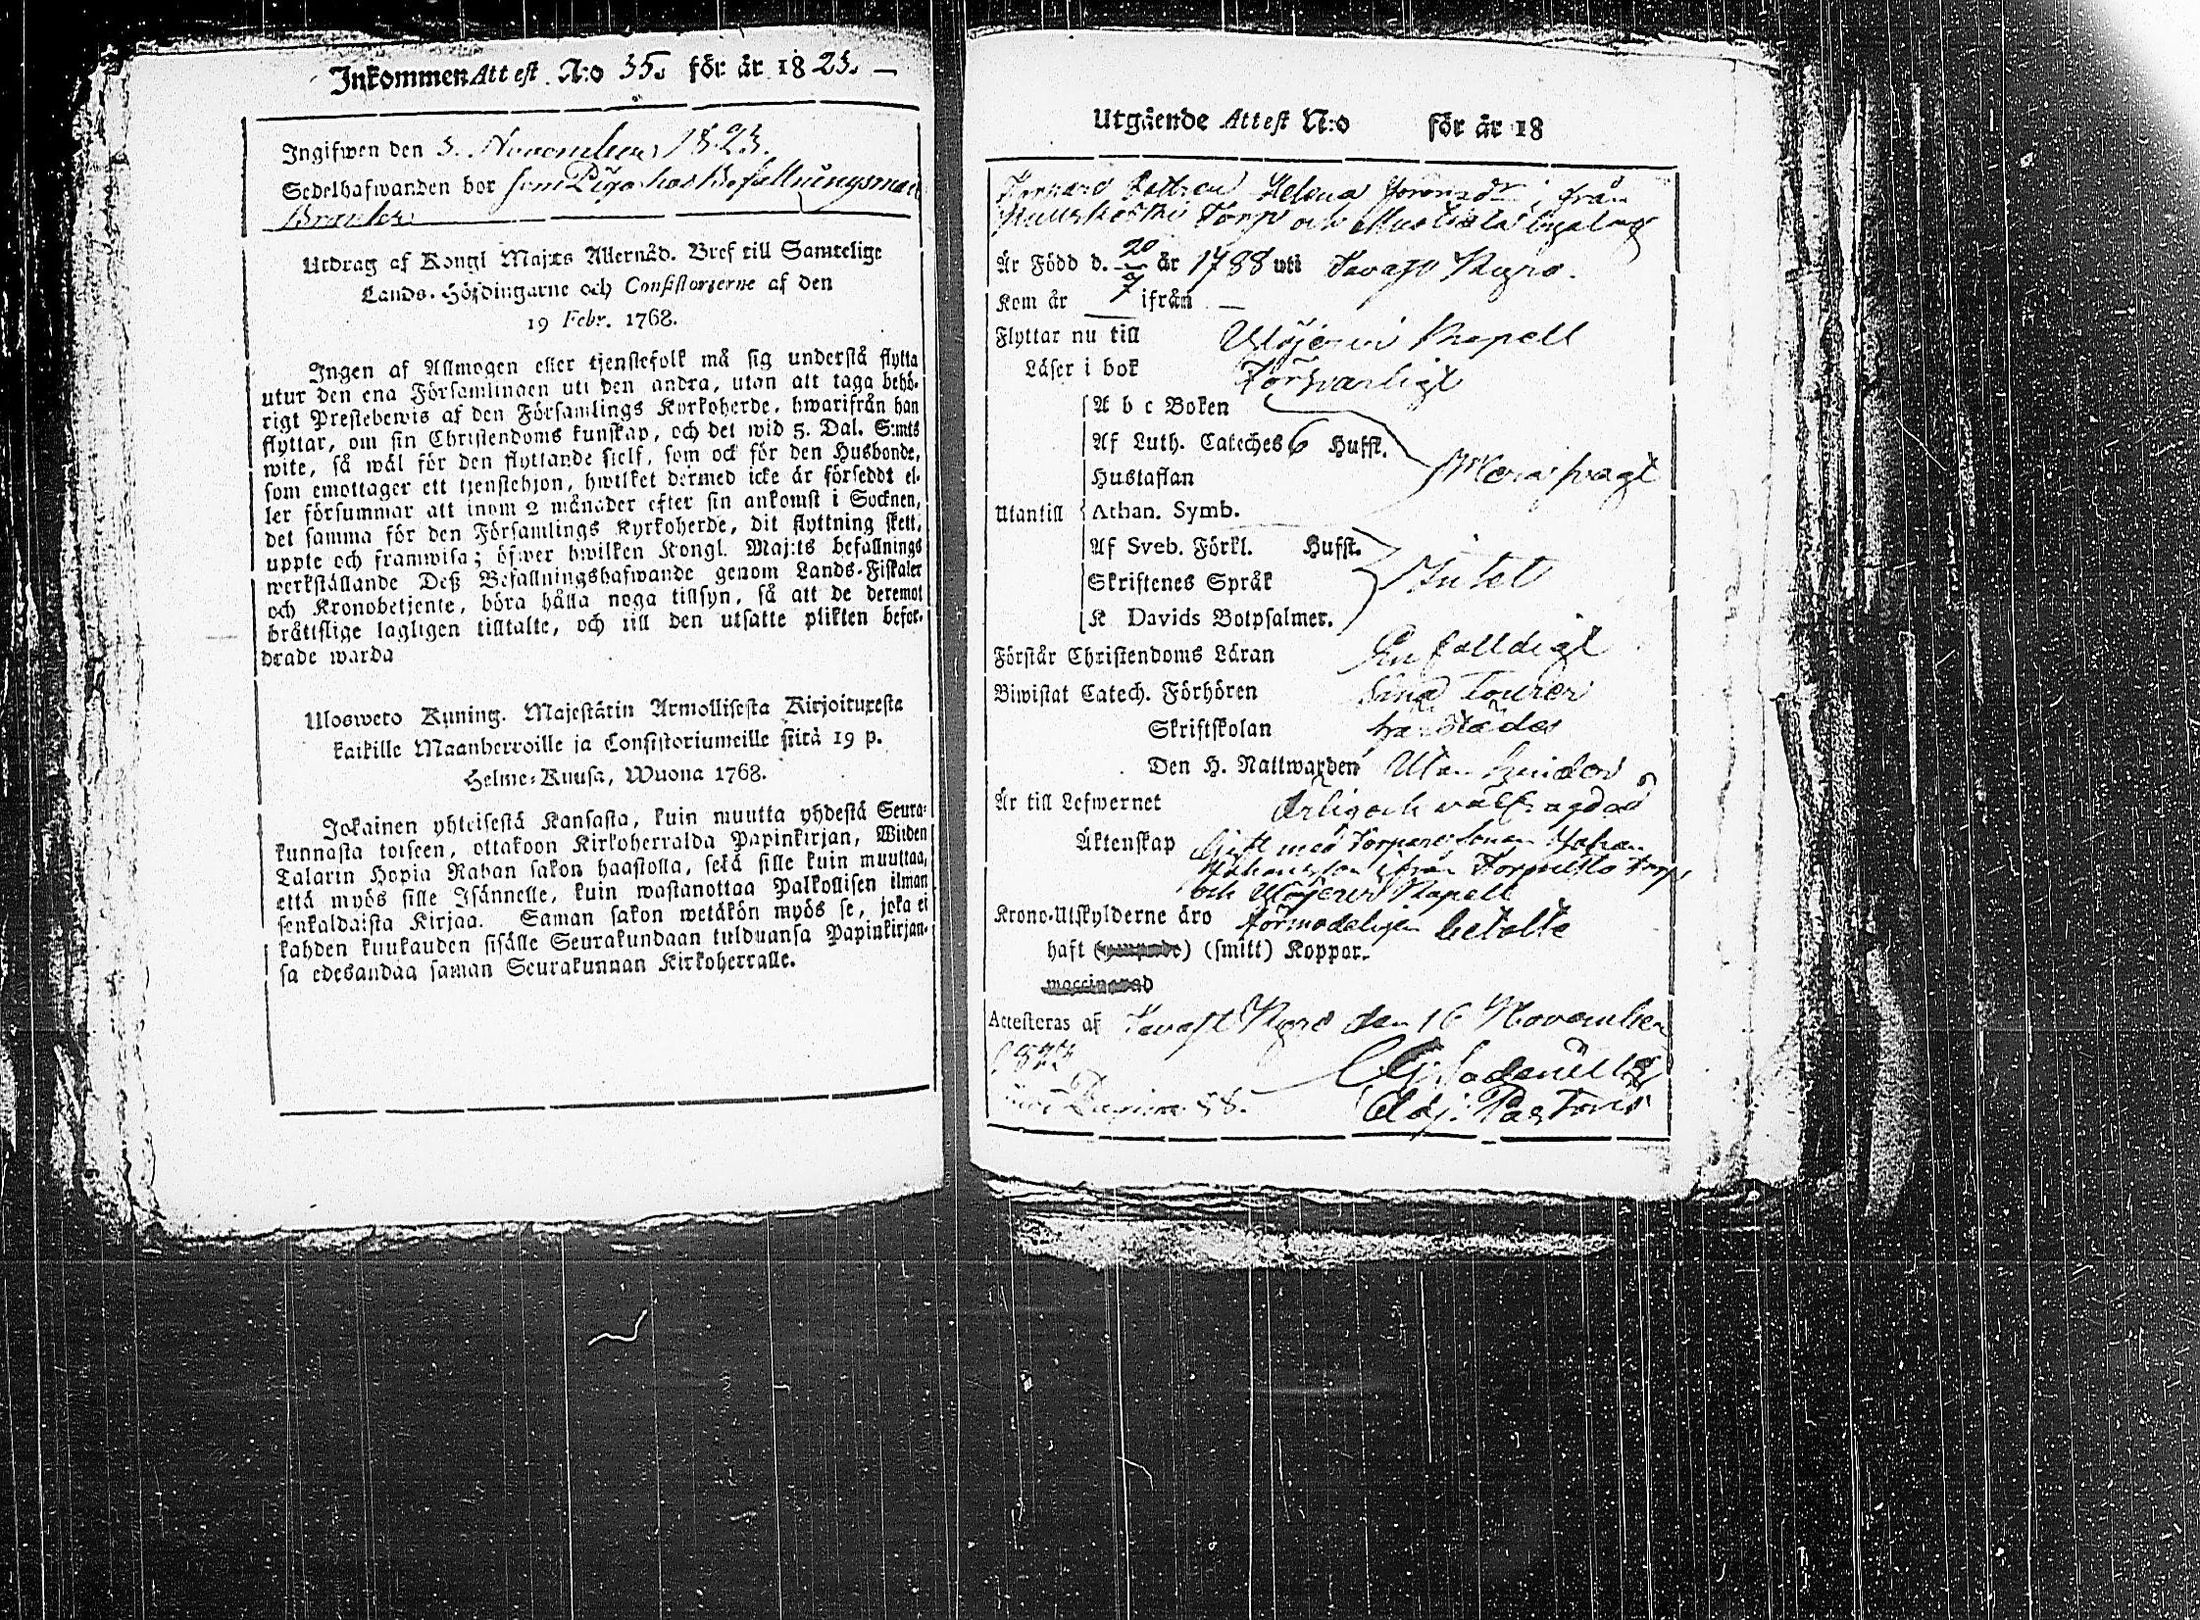 Inkommen Attest N:o 35. för år 1823. —
Ingifwen den 3. November 1823.
Sedelhafwanden bor som Piga hos Befallningsman
Utdrag af Kongl Maj:ts Allernåd. Bref till Samtelige
Lands-Höfdingarne och Consistorierne af den
19 Febr. 1768.
Ingen af Allmogen eller tjenstefolk må sig understå flytta
utur den ena Församlingen uti den andra, utan att taga behö-
rigt Prestebewis af den Församlings Kyrkoherde, hwarifrån han
flyttar, om sin Christendoms kunskap, och det wid 5. Dal. S:mts
wite, så wäl för den flyttande sielf, som ock för den Husbonde,
som emottager ett tjenstehjon, hwilket dermed icke är försedt el-
ler försummar att inom 2 månader efter sin ankomst i Socknen,
det samma för den Församlings Kyrkoherde, dit flyttning skett,
uppte och framwisa; öfwer hwilken Kongl. Maj:ts befallnings
werkställande Deß Befallningshafwande genom Lands-Fiskaler
och Kronobetjente, böra hålla noga tillsyn, så att de deremot
bråttslige lagligen tilltalte, och till den utsatte plikten befor-
drade warda
Ulosweto Kuning. Majestätin Armollisesta Kirjoituxesta
kaikille Maanherroille ja Consistoriumeille siitä 19 p.
Helme-Kuusa, Wuona 1768.
Jokainen yhteisestä Kansasta, kuin muutta yhdestä Seura-
kunnasta toiseen, ottakoon Kirkoherralda Papinkirjan, Wiiden
Talarin Hopia Rahan sakon haastolla, sekä sille kuin muuttaa,
että myös sille Isännelle, kuin wastanottaa Palkollisen ilman
senkaldaista Kirjaa. Saman sakon wetäkön myös se, joka ei
kahden kuukauden sisälle Seurakundaan tulduansa Papinkirjan-
sa edesandaa saman Seurakunnan Kirkoherralle.
Utgående Attest N:o för år 18
Helena från
Torp och
Är Född d. 20/7 år 1788 uti Tavast Kyro.
Kom år — ifrån —
Flyttar nu till Kapell
Läser i bok Försvarligt
A b c Boken
Af Luth. Cateches 6 Hufst.
Hustaflan
Utantill Athan. Symb.
Af Sveb. Förkl. Hufst.
Skriftenes Språk Intet
K Davids Botpsalmer.
Förstår Christendoms Läran Enfalldigt
Biwistat Catech. Förhören
Skriftskolan
Den H. Nattwarden Utan hinder
Är till Lefwernet Ärlig och
Äktenskap Gift med Torparesonen Johan
Johansson ifrån Torp
och Kapell
Krono-Utskylderne äro förmodeligen betalte
haft (smitt) Koppor.
Attesteras af Tavast Kyro den 16 November
Adj. Pastoris